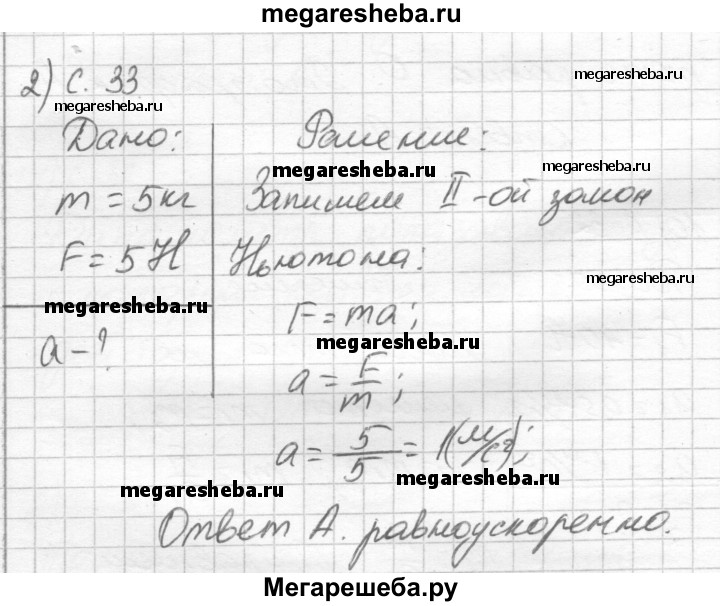 megaresheba.ru
2) с. 33
megaresheba.ru
megaresheba.ru
Дано:
Решение:
megaresheba.ru
megaresheba.ru
m = 5 кг
Запишем II-ой закон
F = 5 Н
Ньютона:
megaresheba.ru
megaresheba.ru
F = ma;
a - ?
megaresheba.ru
a = F/m;
a = 5/5 = 1 (м/с²);
megaresheba.ru
megaresheba.ru
Ответ А. равноускоренно.
Мегарешеба.ру